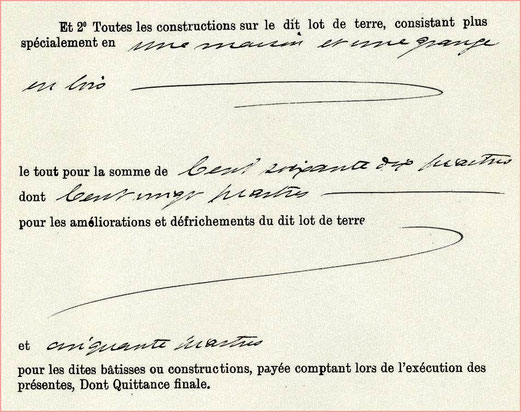 Et 2º Toutes les constructions sur le dit lot de terre, consistant plus
spécialement en une maison et une grange
en bois
le tout pour la somme de Cent soixante dix piastres
dont Cent vingt piastres
pour les améliorations et défrichements du dit lot de terre
et cinquante piastres
pour les dites bâtisses ou constructions, payée comptant lors de l'exécution des
présentes, Dont Quittance finale.